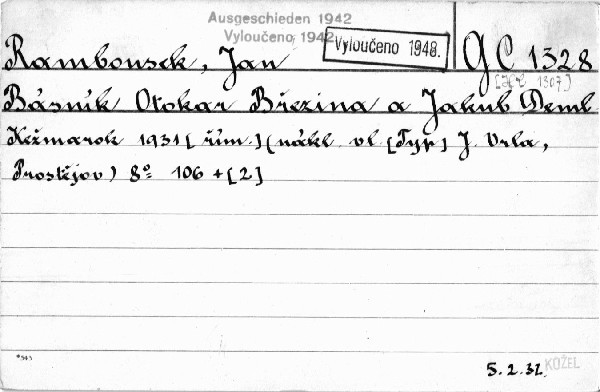 Ausgeschieden 1942
Vyloučeno 1942
Vyloučeno 1948.
Rambousek, Jan
GC 1328
Básník Otokar Březina a Jakub Deml
Kežmarok 1931 [řím.] (nákl. vl. [Typ] J. Vrla,
Prostějov) 8° 106 + [2]
5.2.32.
KOŽEL